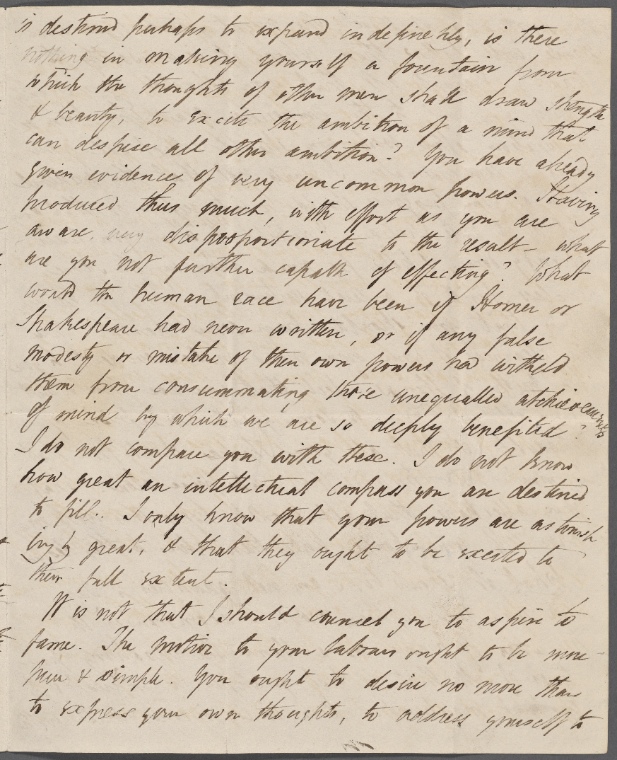 is destined perhaps to expand indefinitely, is there
nothing in making yourself a fountain from
which the thoughts of other men shall draw strength
& beauty, to excite the ambition of a mind that
can despise all other ambition? You have already
given evidence of very uncommon powers. Having
produced thus much, with effort as you are
aware very disproportionate to the result – what
are you not further capable of effecting? What
would the human race have been if Homer or
Shakespeare had never written, or if any false
modesty or mistake of their own powers had witheld
them from consummating those unequalled atchievements
of mind by which we are so deeply benefited?
I do not compare you with these. I do not know
how great an intellectual compass you are destined
to fill. I only know that your powers are astonish
ingly great, & that they ought to be excited to
their full extent.
It is not that I should counsel you to aspire to
fame. The motive to your labours ought to be more
pure & simple. You ought to desire no more than
to express your own thoughts, to address yourself to